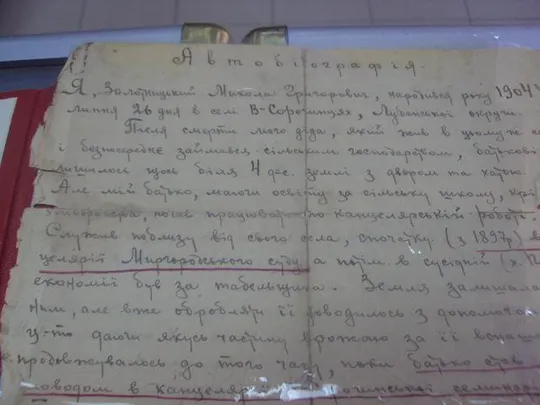 Автобіографія.
Я, Золотницький Микола Григорович, народився року 1904
липня 26 дня в селі В-Сорочинцях, Лубенської округи.
Після смерти мого діда, який жив в цьому
і безпосереднє займався сільським господарством, батькові
лишилось щось біля 4 дес. землі з двором та хатою.
Але мій батько, маючи освіту за сільську школу,
почав працювати по канцелярській роботі.
Служив поблизу від свого села, спочатку (з 1897р) в
целярії Миргородського суду а потім в сусідній
економії був за табельщика. Земля залишала
ним, але вже обробляти її доводилось з допомого
даючи якусь частину врожаю за її
продовжувалось до того часу, поки батько став
оводом в канцелярії семинар